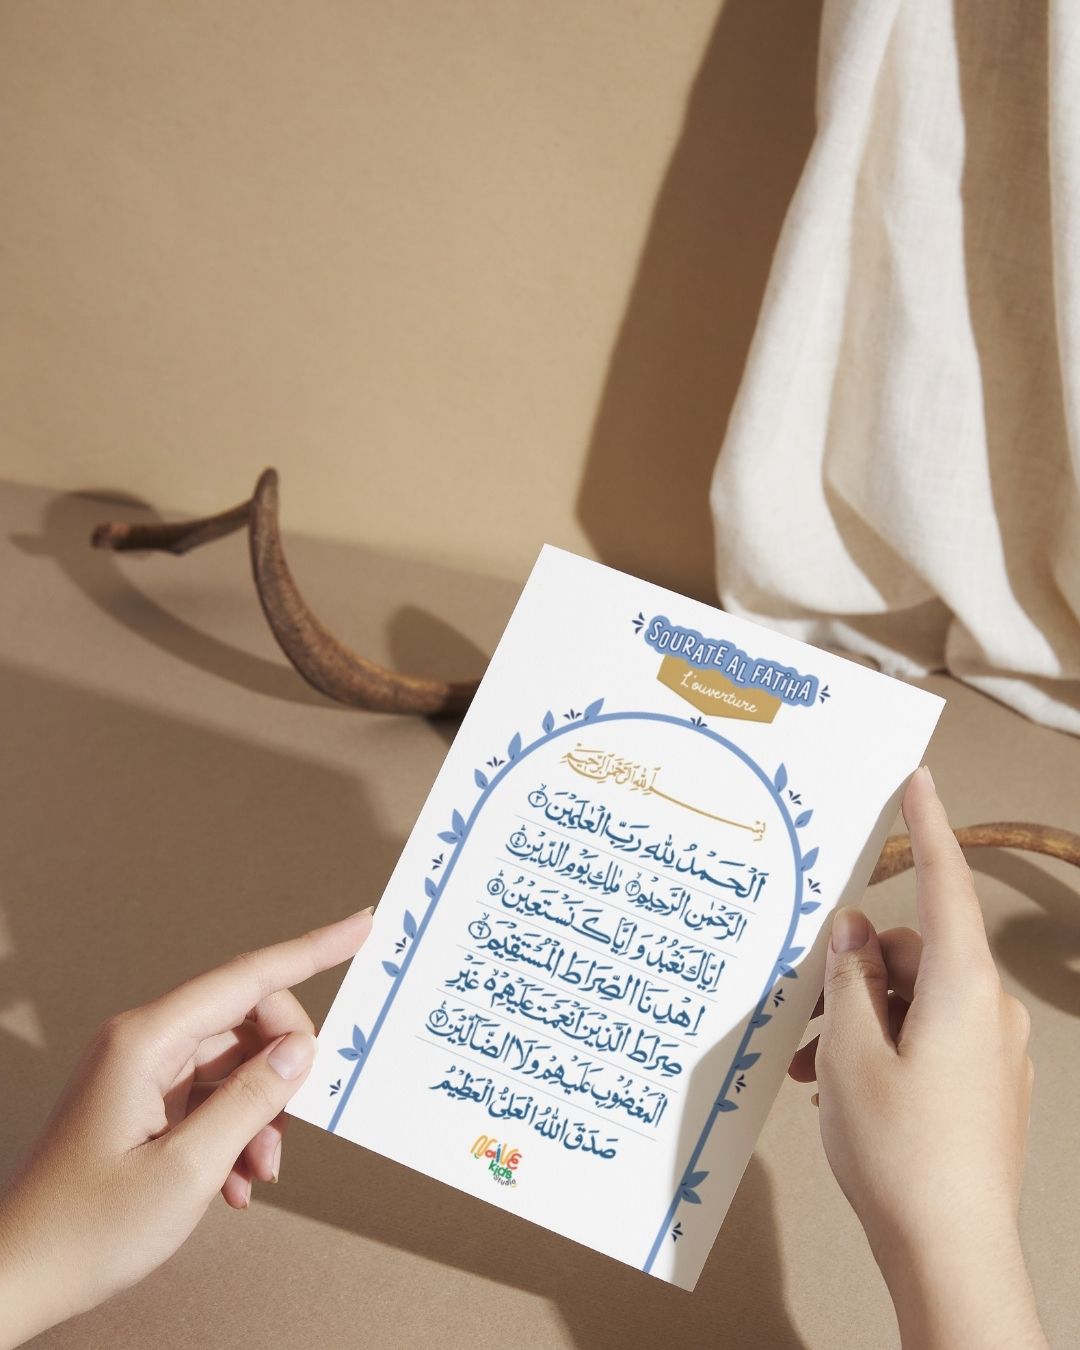 SOURATE AL FATiHA
L'ouverture
بِسْمِ ٱللَّهِ ٱلرَّحْمَٰنِ ٱلرَّحِيمِ
اَلْحَمْدُ لِلّٰهِ رَبِّ الْعٰلَمِيْنَ ٢
الرَّحْمٰنِ الرَّحِيْمِ ٣ مٰلِكِ يَوْمِ الدِّيْنِ ٤
اِيَّاكَ نَعْبُدُ وَ اِيَّاكَ نَسْتَعِيْنُ ٥
اِهْدِنَا الصِّرَاطَ الْمُسْتَقِيْمَ ٦
صِرَاطَ الَّذِيْنَ اَنْعَمْتَ عَلَيْهِمْ ە غَيْرِ
الْمَغْضُوْبِ عَلَيْهِمْ وَلَا الضَّآلِّيْنَ ٧
صَدَقَ اللهُ الْعَلِيُّ الْعَظِيْمُ
Naive
kids
studio